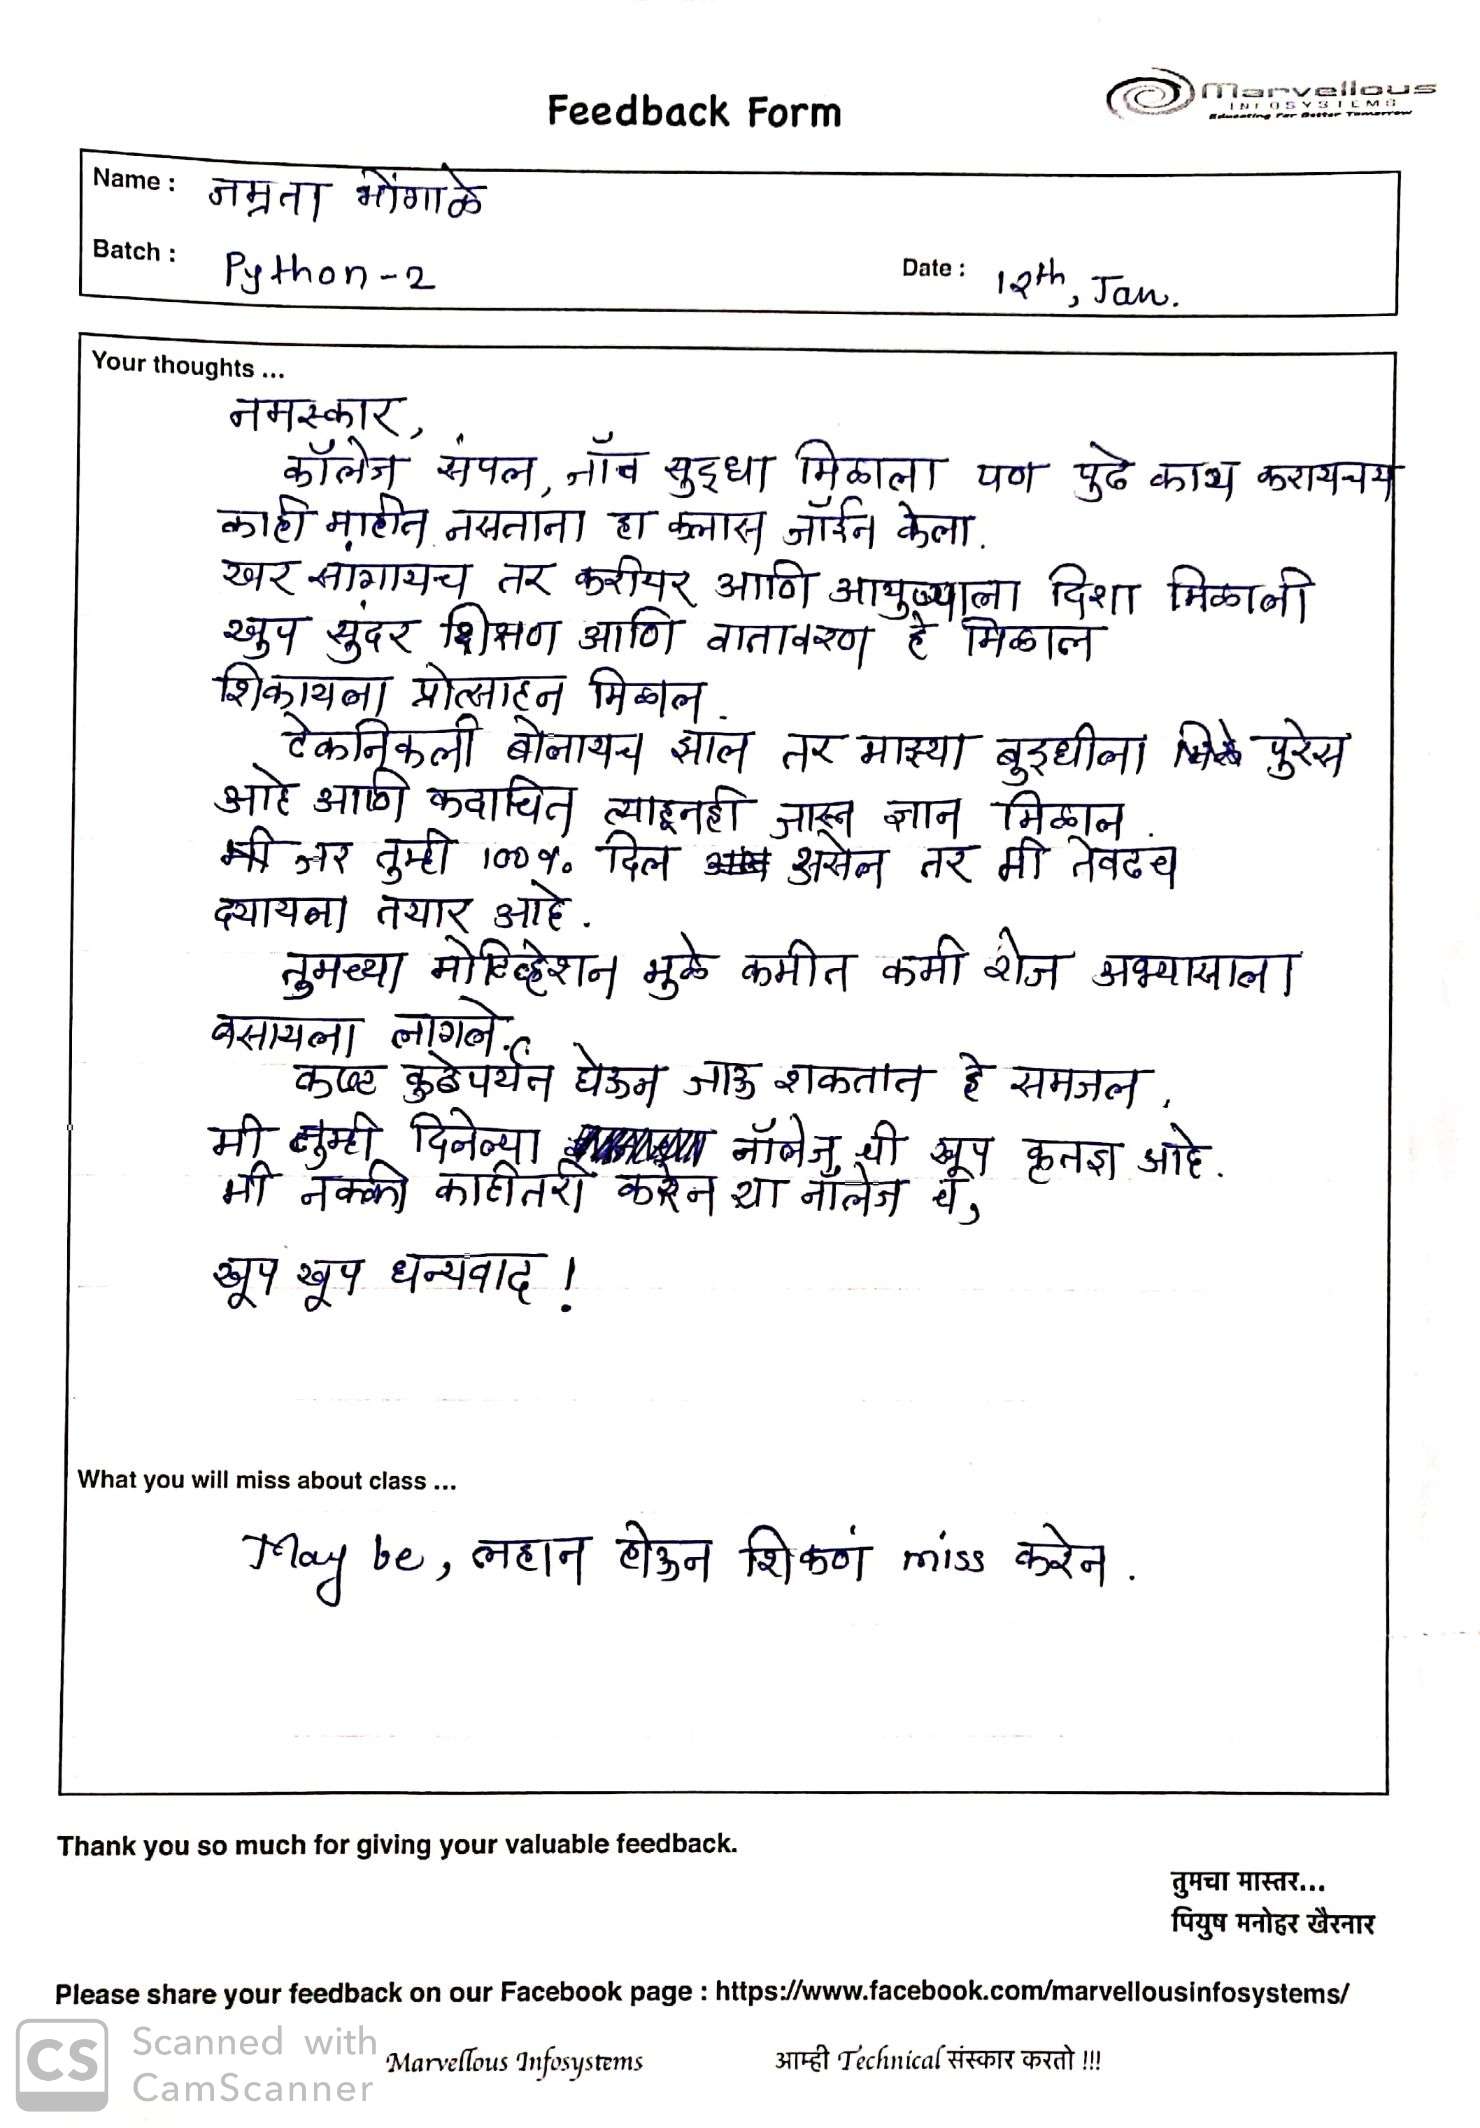 Feedback Form
Marvellous
INFOSYSTEMS
Educating For Better Tomorrow
Name : नम्रता भोंगाळे
Batch : Python-2
Date : 12th, Jan.
Your thoughts ...
नमस्कार,
कॉलेज संपल, जॉब सुद्धा मिळाला पण पुढे काय करायचय
काही माहीत नसताना हा क्लास जॉईन केला.
खर सांगायच तर करीयर आणि आयुष्याला दिशा मिळाली
खुप सुंदर शिक्षण आणि वातावरण हे मिळाल
शिकायला प्रोत्साहन मिळाल.
टेकनिकली बोलायच झालं तर माझ्या बुद्धीला पुरेस
आहे आणि कदाचित त्याहूनही जास्त ज्ञान मिळाल.
जर तुम्ही 100% दिल असेल तर मी तेवढच
द्यायला तयार आहे.
तुमच्या मोटिव्हेशन मुळे कमीत कमी रोज अभ्यासाला
बसायला लागले.
कष्ट कुठेपर्यंत घेऊन जाऊ शकतात हे समजल.
मी तुम्ही दिलेल्या नॉलेज ची खूप कृतज्ञ आहे.
मी नक्की काहीतरी करेन या नॉलेज चं,
खूप खूप धन्यवाद !
What you will miss about class ...
May be, लहान होऊन शिकणं miss करेन .
Thank you so much for giving your valuable feedback.
तुमचा मास्तर...
पियुष मनोहर खैरनार
Please share your feedback on our Facebook page : https://www.facebook.com/marvellousinfosystems/
CS Scanned with
CamScanner
Marvellous Infosystems
आम्ही Technical संस्कार करतो !!!